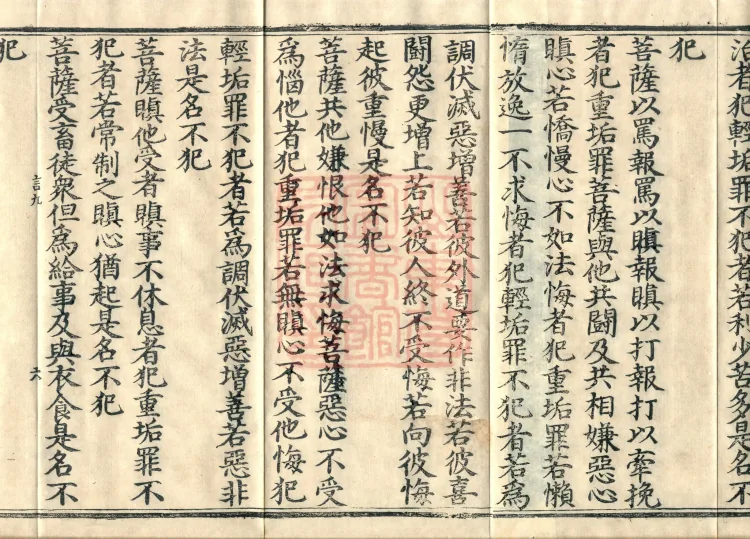 治者犯輕垢罪不犯者若利少苦多是名不
犯
菩薩以罵報罵以瞋報瞋以打報打以牽挽
者犯重垢罪菩薩與他共鬪及共相嫌惡心
瞋心若憍慢心不如法悔者犯重垢罪若懶
惰放逸一不求悔者犯輕垢罪不犯者若爲
調伏滅惡增善若彼外道要作非法若彼喜
鬪怨更增上若知彼人終不受悔若向彼悔
起彼重慢是名不犯
菩薩共他嫌恨他如法求悔菩薩惡心不受
爲惱他者犯重垢罪若無瞋心不受他悔犯
輕垢罪不犯者若爲調伏滅惡增善若惡非
法是名不犯
菩薩瞋他受者瞋事不休息者犯重垢罪不
犯者若常制之瞋心猶起是名不犯
菩薩受畜徒眾但爲給事及與衣食是名不
言九 六
犯